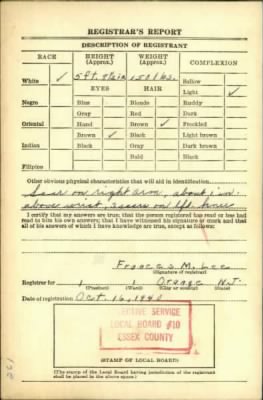 REGISTRAR'S REPORT
DESCRIPTION OF REGISTRANT
RACE HEIGHT (Approx.) WEIGHT (Approx.) COMPLEXION
White ✓ 5 ft. 150 lbs. Sallow
EYES HAIR Light ✓
Negro Blue Blonde Ruddy
Gray Red Dark
Oriental Hazel Brown ✓ Freckled
Brown ✓ Black Light brown
Indian Black Gray Dark brown
Bald Black
Filipino
Other obvious physical characteristics that will aid in identification
Scar on right arm, about 1 in.
above wrist, 2 scars on left knee
I certify that my answers are true; that the person registered has read or has had
read to him his own answers; that I have witnessed his signature or mark and that
all of his answers of which I have knowledge are true, except as follows:
Frances M. Lee
(Signature of registrar)
Registrar for 1 1 Orange N.J.
(Precinct) (Ward) (City or county) (State)
Date of registration Oct. 16, 1940
SELECTIVE SERVICE
LOCAL BOARD #10
ESSEX COUNTY
(STAMP OF LOCAL BOARD)
(The stamp of the Local Board having jurisdiction of the registrant
shall be placed in the above space.)